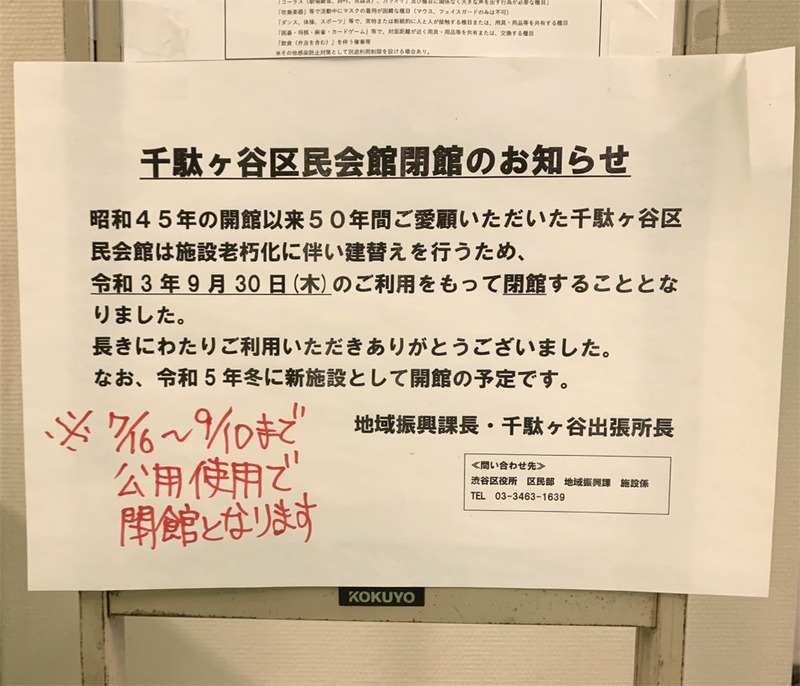 「コーラス（歌唱練習、詩吟、民謡含む）、カラオケ」及び種目に関係なく大きな声を出す行為が必要な種目
「吹奏楽器」等で活動中にマスクの着用が困難な種目（マウス、フェイスガードのみは不可）
「ダンス、体操、スポーツ」等で、常時または断続的に人と人が接触する種目または、用具・用品等を共有する種目
「囲碁・将棋・麻雀・カードゲーム」等で、対面距離が近く用具・用品等を共有または、交換する種目
「飲食（弁当を含む）」を伴う催事等
※その他感染防止対策として別途利用制限を設ける場合あり。
千駄ヶ谷区民会館閉館のお知らせ
昭和４５年の開館以来５０年間ご愛顧いただいた千駄ヶ谷区
民会館は施設老朽化に伴い建替えを行うため、
令和３年９月 30 日(木)のご利用をもって閉館することとな
りました。
長きにわたりご利用いただきありがとうございました。
なお、令和５年冬に新施設として開館の予定です。
地域振興課長・千駄ヶ谷出張所長
※ 7/16～9/10まで
公用使用で
閉館となります
≪問い合わせ先≫
渋谷区役所 区民部 地域振興課 施設係
TEL 03-3463-1639
KOKUYO